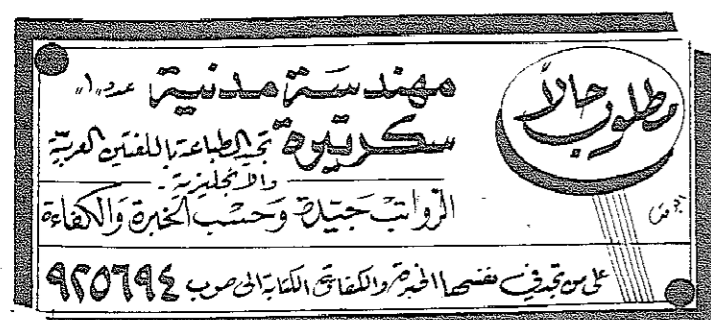 مطلوب حالاً
مهندسة مدنية عدد "١"
سكرتيرة تجيد الطباعة باللغتين العربية
والانجليزية.
الرواتب جيدة وحسب الخبرة والكفاءة
على من تجد في نفسها الخبرة والكفاءة الكتابة الى ص.ب ٩٢٥٦٩٤